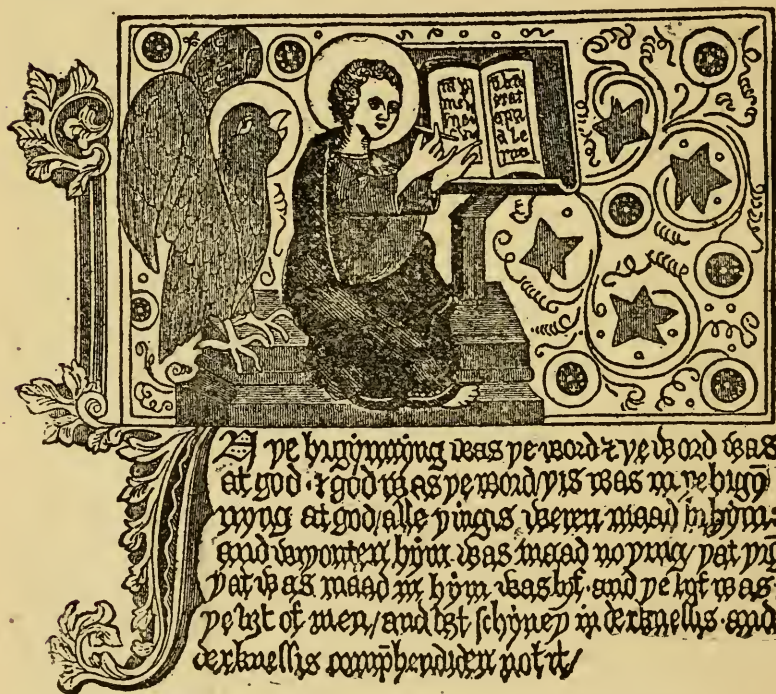 IN ye bigynnyng was ye word & ye word was
at god · & god was ye word / yis was in ye bigyn̄
nyng at god / alle yingis weren maad bi hym:
and wiyouten hym was maad no ying / yat yīg
yat was maad in hym was lyf · and ye lyf was
ye liȝt of men / and liȝt schyney in derknessis · and
derknessis comp̄hendiden not it /